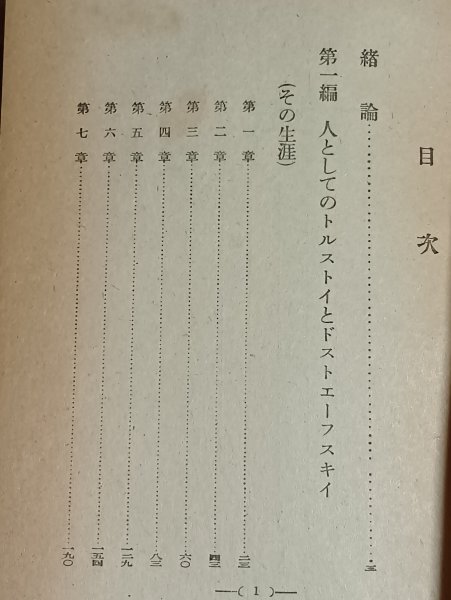 目次
緒論……五
第一編 人としてのトルストイとドストエーフスキイ
(その生涯)
第一章……二三
第二章……四三
第三章……六〇
第四章……八三
第五章……一二九
第六章……一五四
第七章……一九〇
—( 1 )—